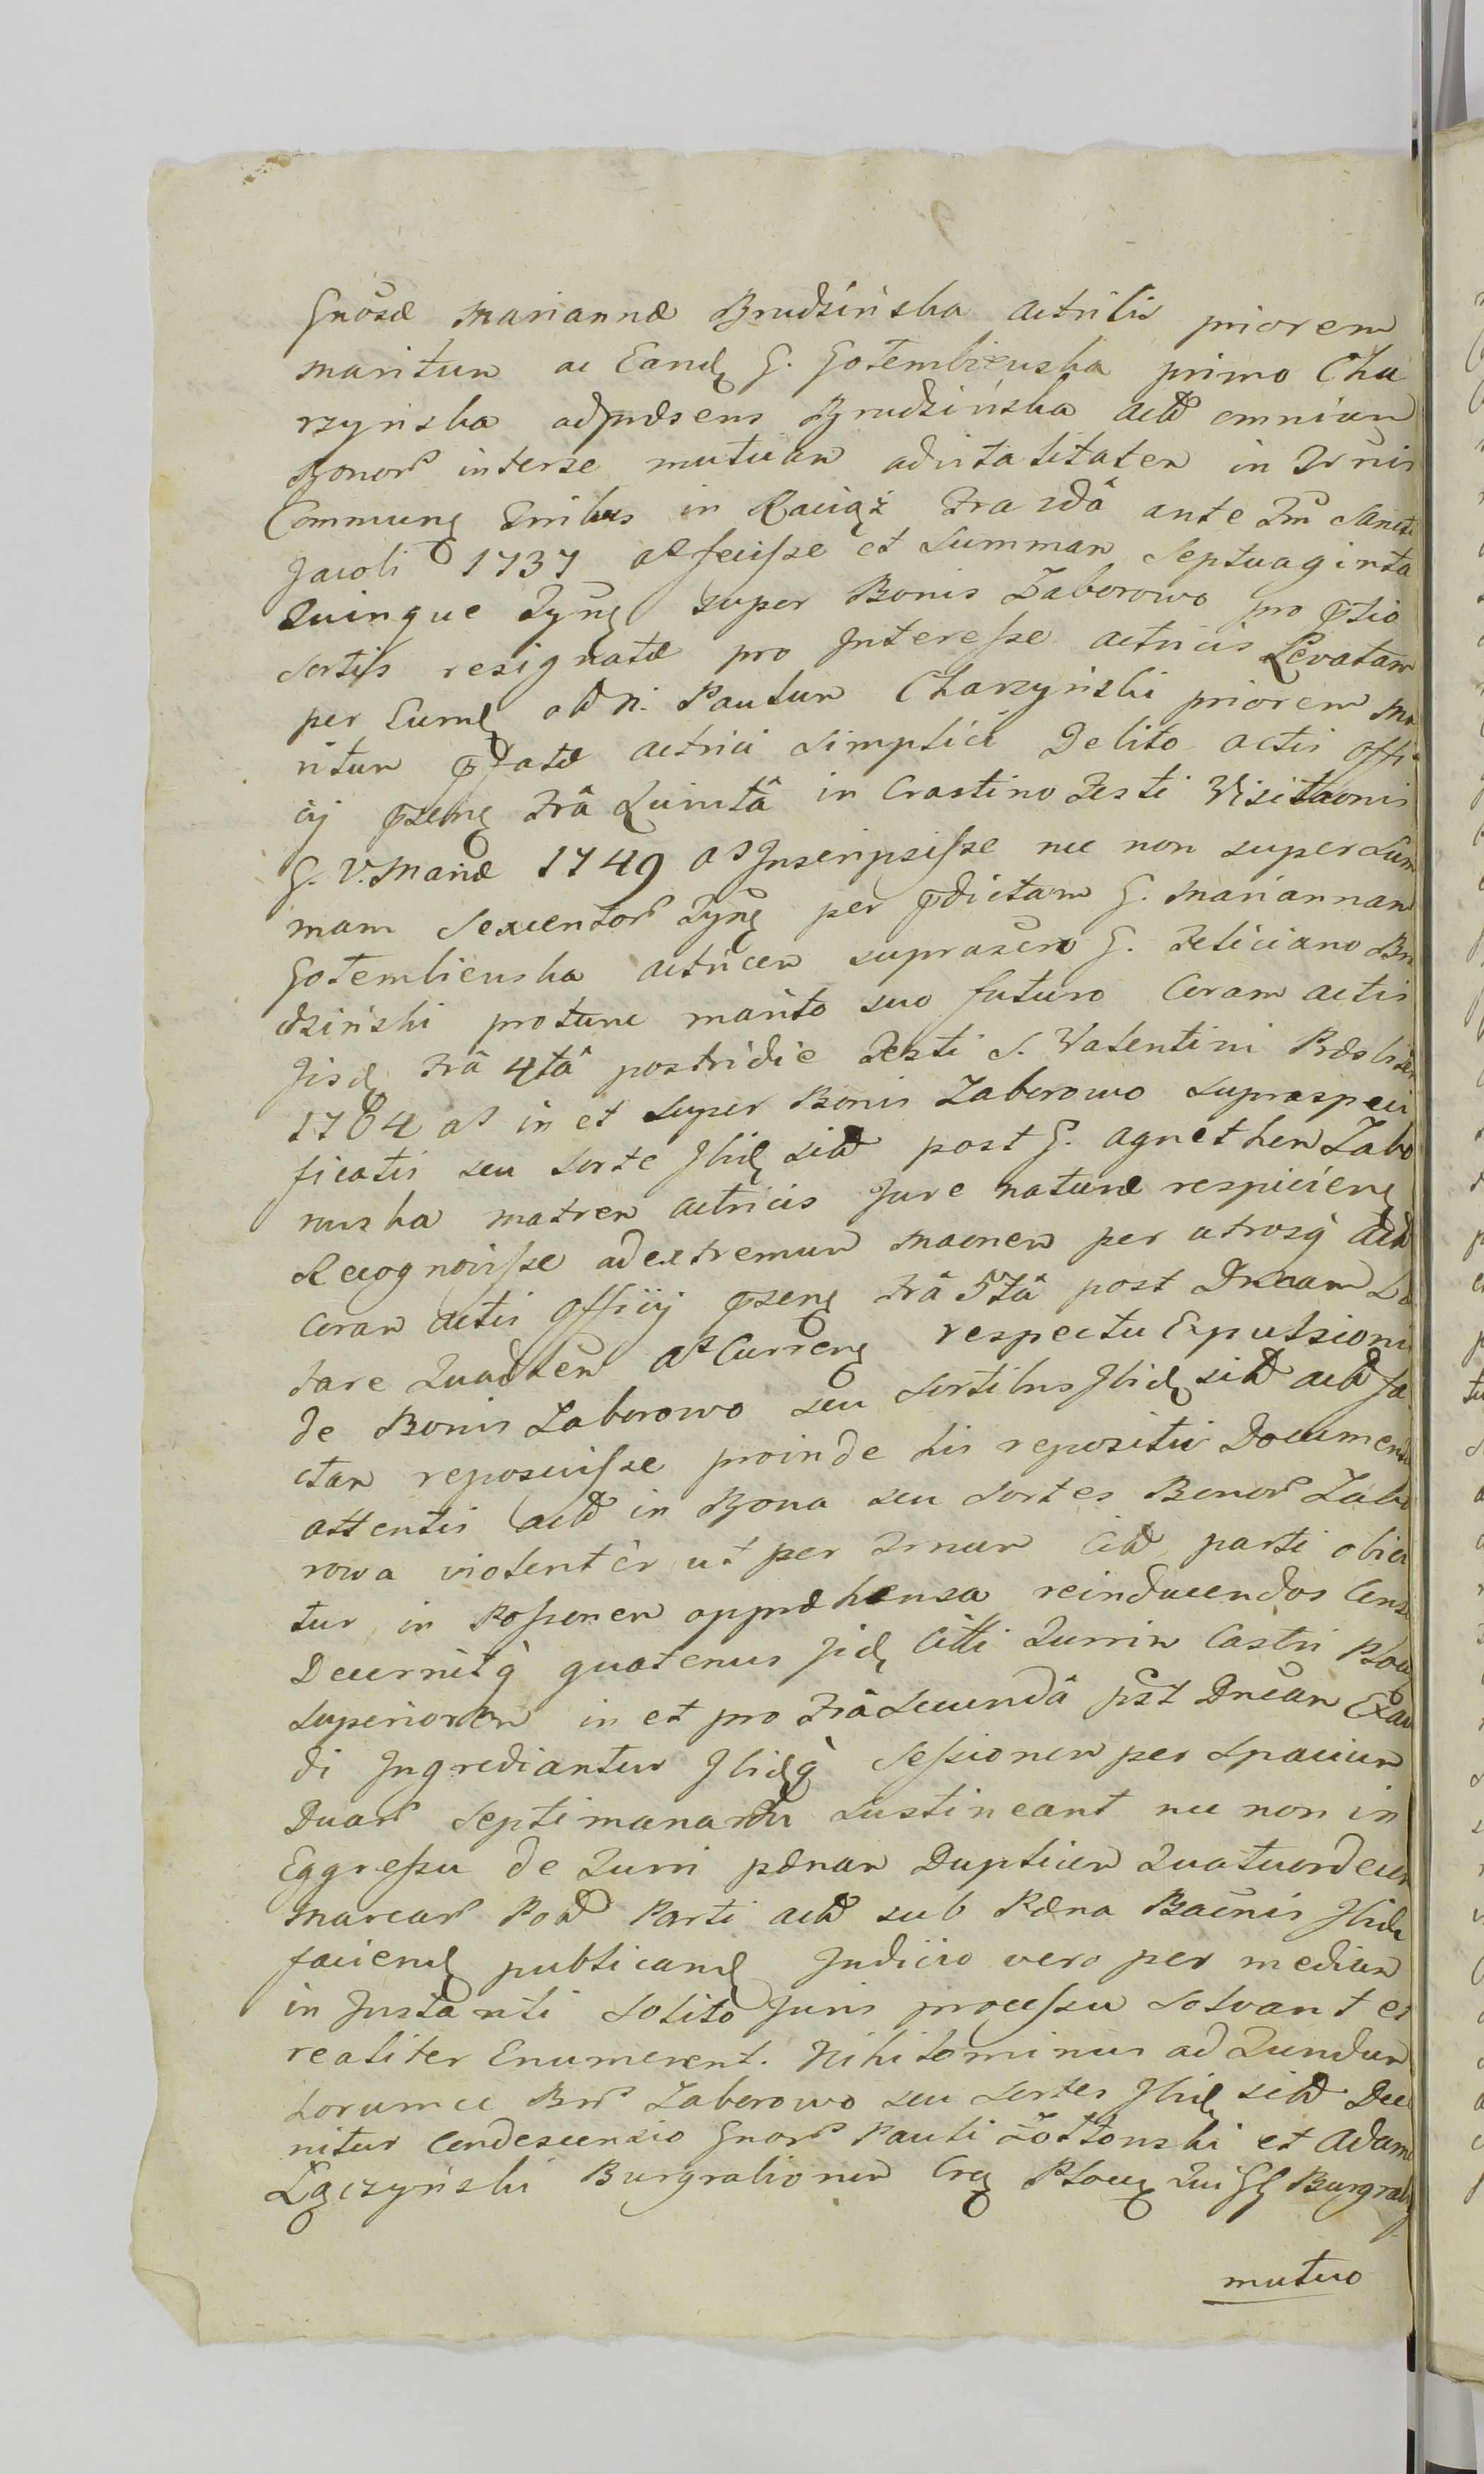 Gnosæ Mariannæ Brudzińska actricis priorem
maritum ac Eand G. Gołembiewska primo Cha
rzyńska adpræsens Brudzińska actt omnium
Bonor interse mutuam advitalitatem in Trnis
Commung Emibus in Raciąż Fra 2dâ ante Fm Sancti
Jacobi 1737 ao fecisse et Summam Septuaginta
Quinque Tyng super Bonis Zaborowo pro ptio
Sortis resignatæ pro Interesse actricis Levatam
per Eumd odn. Paulum Charzyński priorem ma
ritum pfatæ actrici simplici Debito actis offi
cij pzeng Frâ Quintâ in Crastino Festi Visitaonis
G. V. Mariæ 1749 ao Inscripsisse nec non super Sum
mam Sexcentor Tyng per pdictam G. Mariannam
Gołembiewska actricem suprascro G. Feliciano Bru
dziński protunc marito suo futuro Coram actis
Jisd Frâ 4tâ postridie Festi S. Valentini Præsbiteri
1764 ao in et super Bonis Zaborowo supraspeci
ficatis seu sorte Ibid sitt post G. Agnethem Zabo
rowska matrem actricis Jure naturæ respicieng
Recognovisse adextremum maonem per utrosq actt
Coram actis officij pzeng Frâ 5tâ post Dncam Læ
tare Quadlem ao Curreng respectu Expulsionis
de Bonis Zaborowo seu sortibus Ibid sitt actt fa
ctam reposuisse proinde his repositis Documentis
attentis actt in Bona seu sortes Bonor Zabo
rowa violentèr ut per Trnum Citt parti obici
tur in Possonem appræhensa reinducendos Cens
Decernitq quatenus Jid Citti Turrim Castri Ploc
superiorem in et pro Frâ Secundâ pst Dncam Exau
di Ingrediantur Ibidq Sessionem per Spacium
Duar Septimanarum sustineant nec non in
Eggressu de Turri pænam Duplicem Quatuordecim
Marcar Pott Parti actt sub Pæna Bacnis Ibid
faciend publicand Judicio vero per mediam
in Instanti solito Juris processu solvant et
realiter Enumerent. Nihilominus ad Tundum
horumce Br Zaborowo seu sortes Ibid sitt Dec
nitur Condescensio Gnor Pauli Żółtowski et Adami
Łączyński Burgrabionum Crg Plocg Qui GG Burgrabij
mutuo